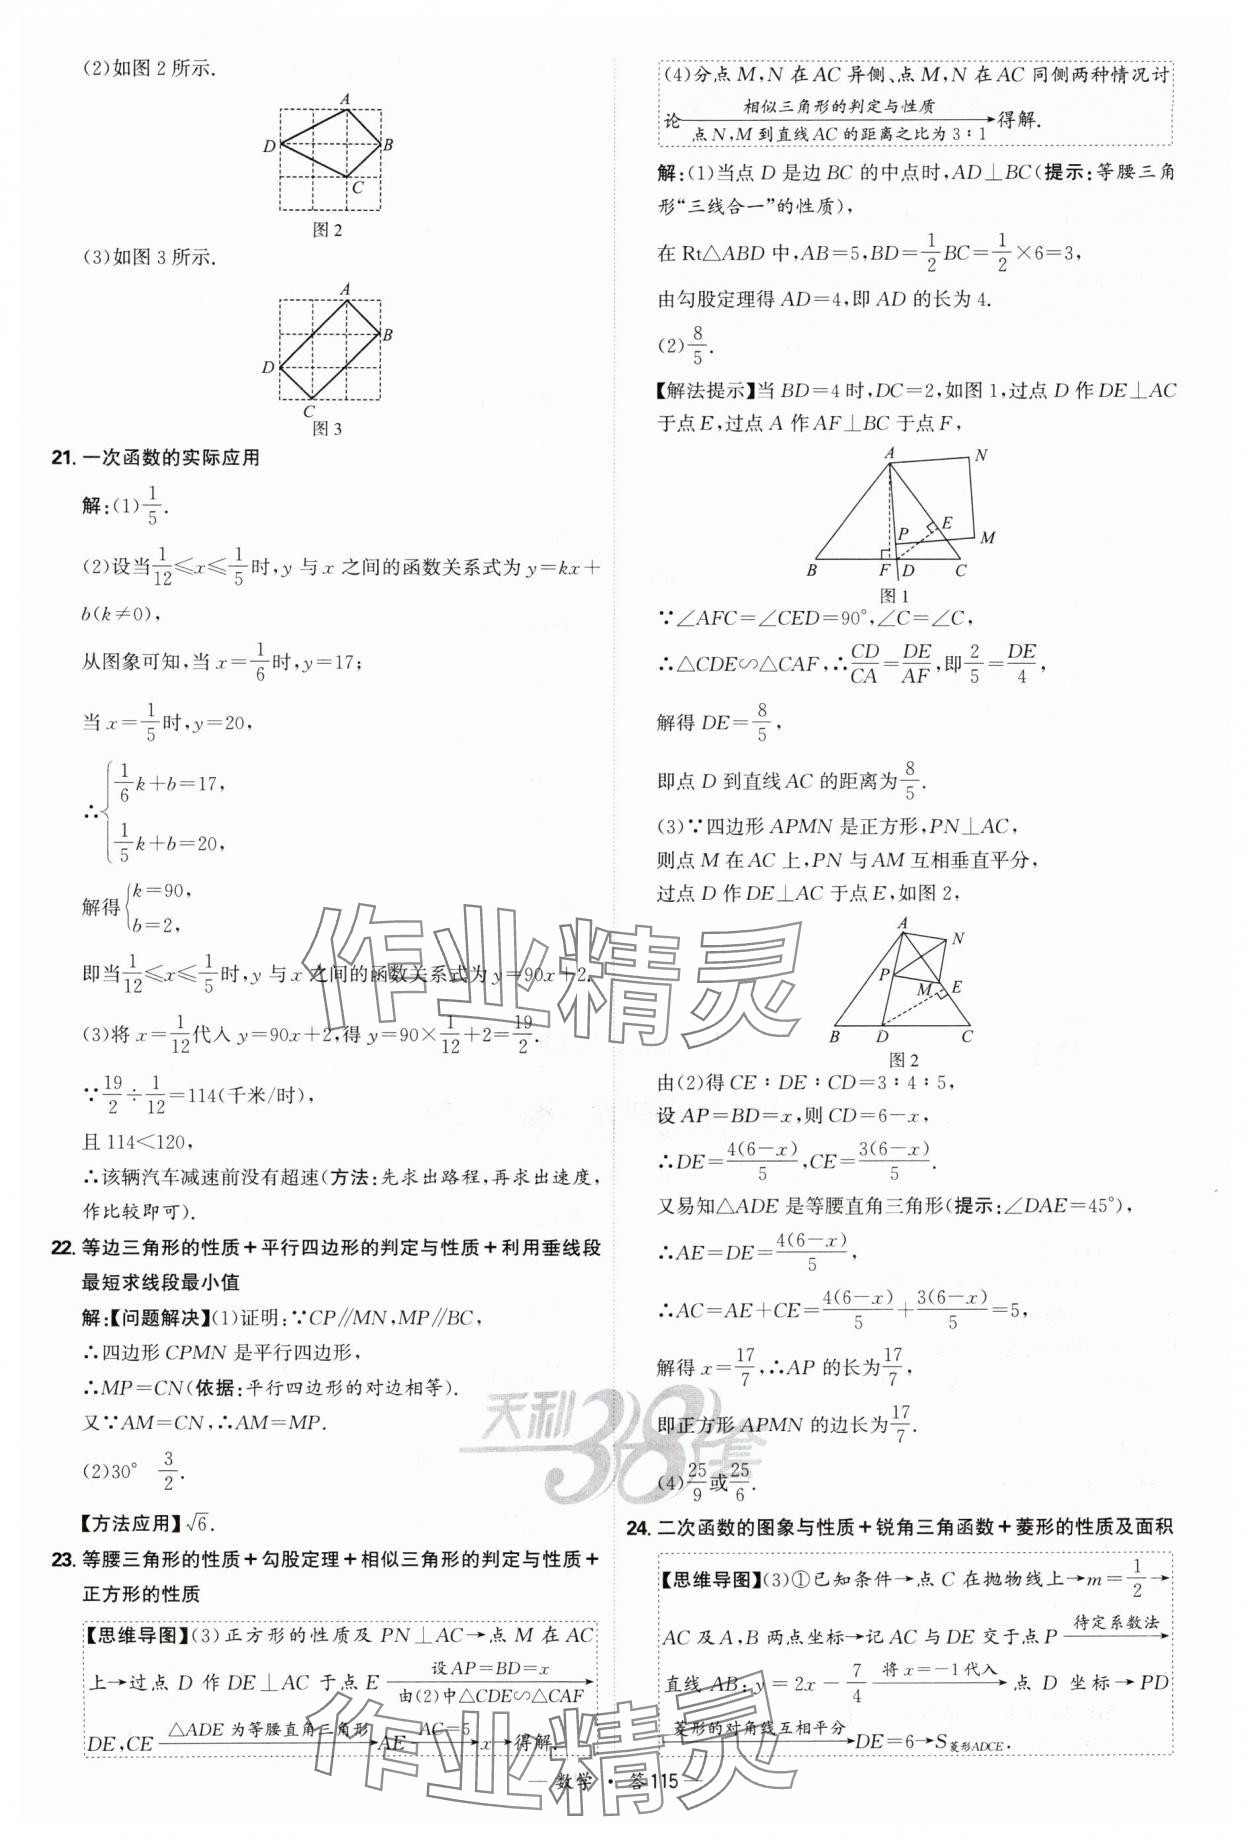 (2)如图 2 所示.
A
D
B
C
图 2
(3)如图 3 所示.
A
B
D
C
图 3
21. 一次函数的实际应用
解:(1)1/5.
(2)设当1/12≤x≤1/5时,y 与 x 之间的函数关系式为 y=kx+
b(k≠0),
从图象可知,当 x=1/6时,y=17;
当 x=1/5时,y=20,
∴{1/6k+b=17,
1/5k+b=20,
解得{k=90,
b=2,
即当1/12≤x≤1/5时,y 与 x 之间的函数关系式为 y=90x+2.
(3)将 x=1/12代入 y=90x+2,得 y=90×1/12+2=19/2.
∵19/2÷1/12=114(千米/时),
且 114<120,
∴该辆汽车减速前没有超速(方法:先求出路程,再求出速度,
作比较即可).
22. 等边三角形的性质+平行四边形的判定与性质+利用垂线段
最短求线段最小值
解:【问题解决】(1)证明:∵CP∥MN,MP∥BC,
∴四边形 CPMN 是平行四边形,
∴MP=CN(依据:平行四边形的对边相等).
又∵AM=CN,∴AM=MP.
(2)30° 3/2.
【方法应用】√6.
23. 等腰三角形的性质+勾股定理+相似三角形的判定与性质+
正方形的性质
【思维导图】(3)正方形的性质及 PN⊥AC→点 M 在 AC
上→过点 D 作 DE⊥AC 于点 E 设AP=BD=x 由(2)中△CDE∽△CAF→
DE,CE △ADE为等腰直角三角形→AE AC=5→x→得解.
(4)分点 M,N 在 AC 异侧、点 M,N 在 AC 同侧两种情况讨
论 相似三角形的判定与性质 点N,M到直线AC的距离之比为3∶1→得解.
解:(1)当点 D 是边 BC 的中点时,AD⊥BC(提示:等腰三角
形“三线合一”的性质),
在 Rt△ABD 中,AB=5,BD=1/2BC=1/2×6=3,
由勾股定理得 AD=4,即 AD 的长为 4.
(2)8/5.
【解法提示】当 BD=4 时,DC=2,如图 1,过点 D 作 DE⊥AC
于点 E,过点 A 作 AF⊥BC 于点 F,
A
N
E
P
M
B
F
D
C
图 1
∵∠AFC=∠CED=90°,∠C=∠C,
∴△CDE∽△CAF,∴CD/CA=DE/AF,即2/5=DE/4,
解得 DE=8/5,
即点 D 到直线 AC 的距离为8/5.
(3)∵四边形 APMN 是正方形,PN⊥AC,
则点 M 在 AC 上,PN 与 AM 互相垂直平分,
过点 D 作 DE⊥AC 于点 E,如图 2,
A
N
P
M
E
B
D
C
图 2
由(2)得 CE∶DE∶CD=3∶4∶5,
设 AP=BD=x,则 CD=6-x,
∴DE=4(6-x)/5,CE=3(6-x)/5.
又易知△ADE 是等腰直角三角形(提示:∠DAE=45°),
∴AE=DE=4(6-x)/5,
∴AC=AE+CE=4(6-x)/5+3(6-x)/5=5,
解得 x=17/7,∴AP 的长为17/7,
即正方形 APMN 的边长为17/7.
(4)25/9或25/6.
24. 二次函数的图象与性质+锐角三角函数+菱形的性质及面积
【思维导图】(3)①已知条件→点 C 在抛物线上→m=1/2→
AC 及 A,B 两点坐标→记 AC 与 DE 交于点 P 待定系数法→
直线 AB:y=2x-7/4 将x=-1代入→点 D 坐标→PD
菱形的对角线互相平分→DE=6→S菱形ADCE.
— 数学·答115 —
作业精灵
天利38套
作业精灵